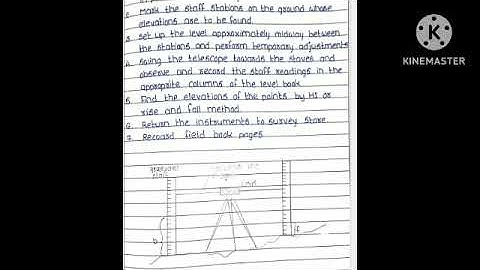 2. Mark the staff stations on the ground whose
elevations are to be found.
3. Set up the level approximately midway between
the stations and perform temporary adjustments
4. Swing the telescope towards the staves and
observe and record the staff readings in the
approprite columns of the level book.
5. Find the elevations of the points by HI or
rise and fall method.
6. Return the instruments to survey store.
7. Recoard field book pages
KINEMASTER
b